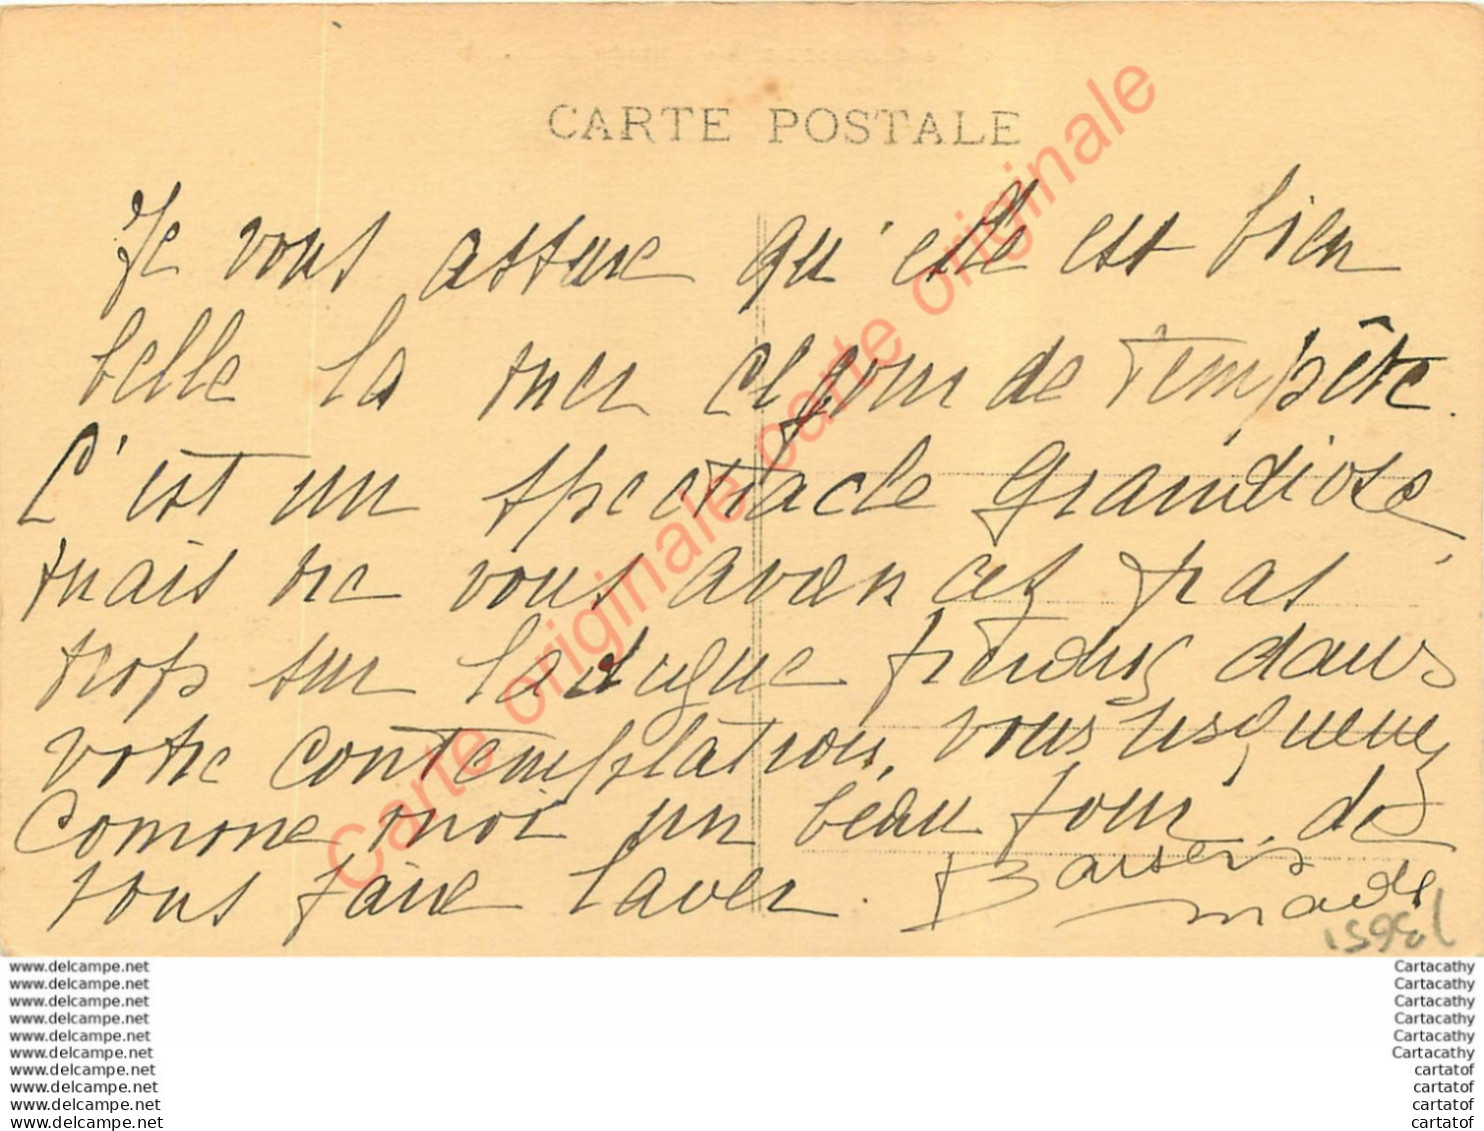 CARTE POSTALE
Je vous assure qu'elle est bien
belle la mer ce jour de tempête.
C'est un spectacle grandiose,
mais ne vous avancez pas
trop sur la digue perdus dans
votre contemplation, vous risqueriez
comme moi un beau jour, de
vous faire laver. Baisers
Carte originale carte originale
www.delcampe.net Cartacathy
www.delcampe.net Cartacathy
www.delcampe.net Cartacathy
www.delcampe.net Cartacathy
www.delcampe.net Cartacathy
www.delcampe.net Cartacathy
www.delcampe.net cartatof
www.delcampe.net cartatof
www.delcampe.net cartatof
www.delcampe.net cartatof